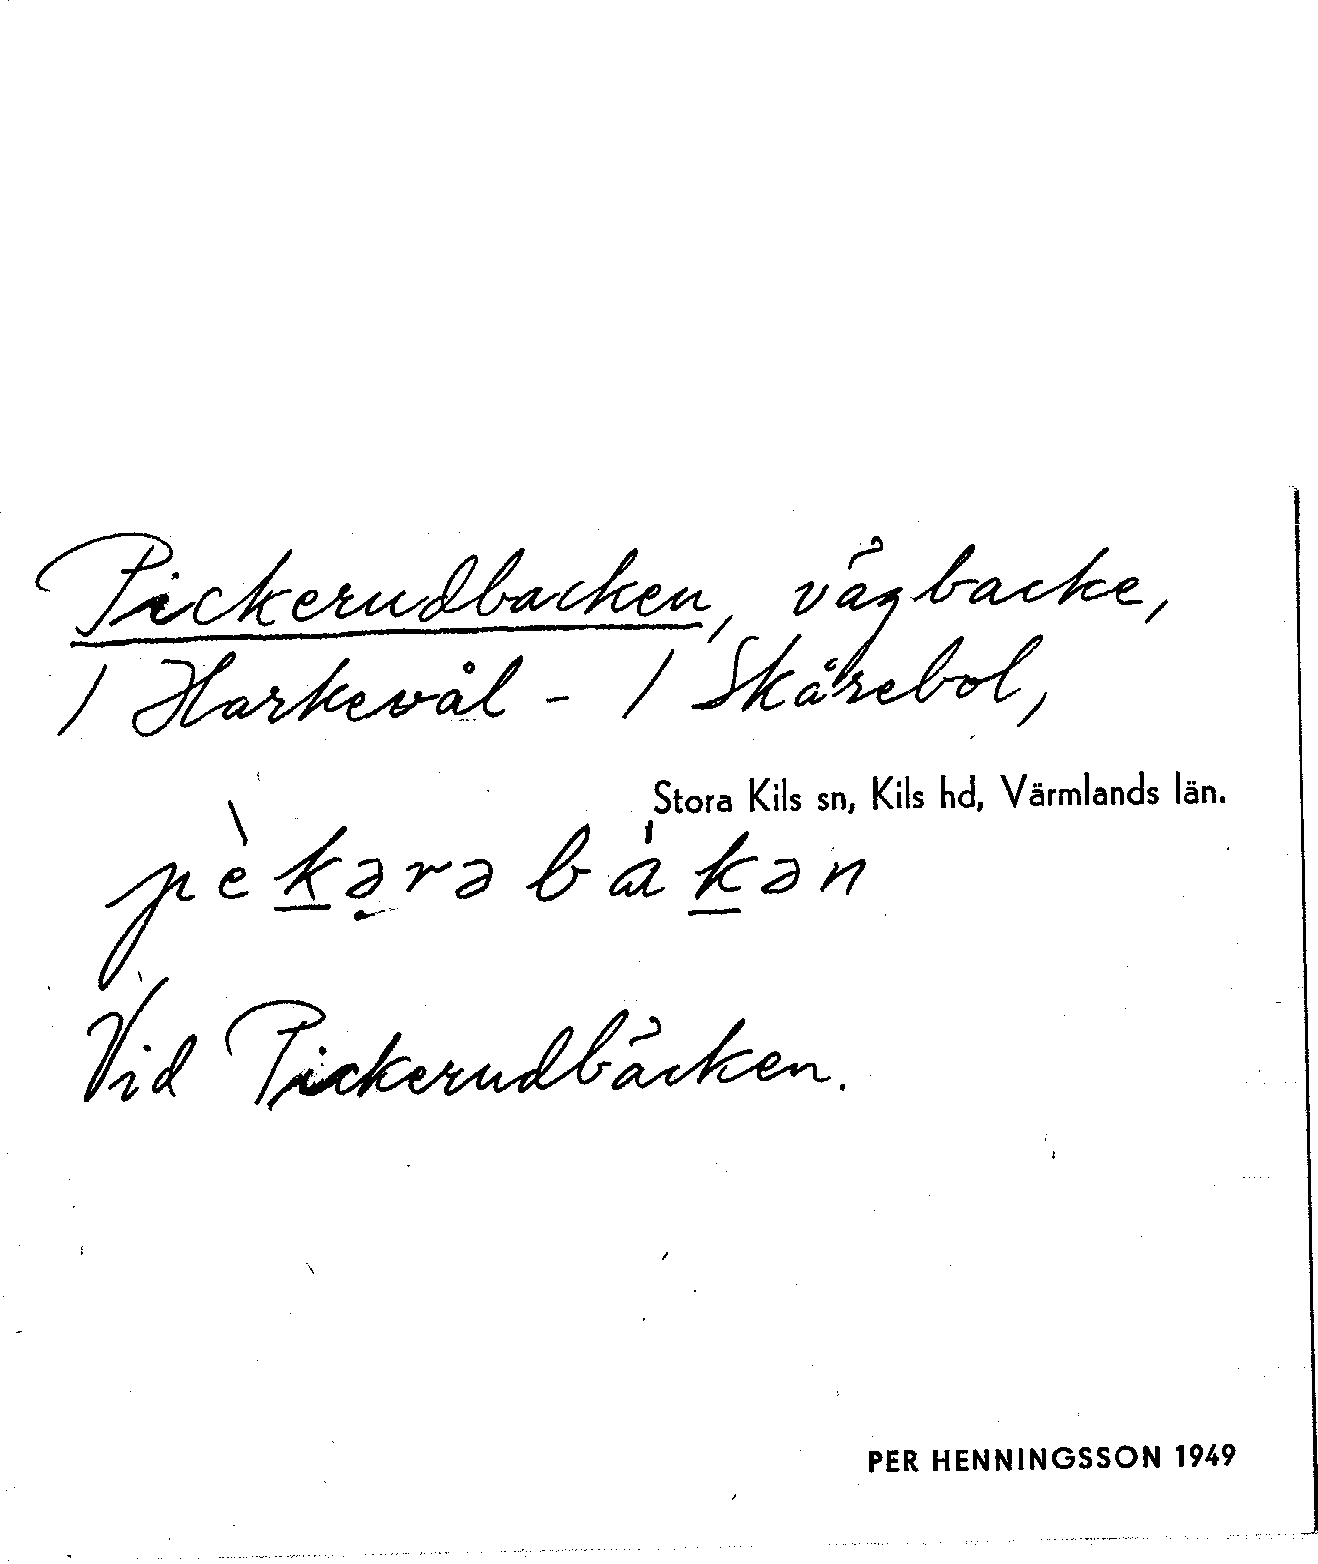 Pickerudbacken, vägbacke,
/ Harkevål - / Skårebol,
Stora Kils sn, Kils hd, Värmlands län.
pèkərə bákən
Vid Pickerudbäcken.
PER HENNINGSSON 1949